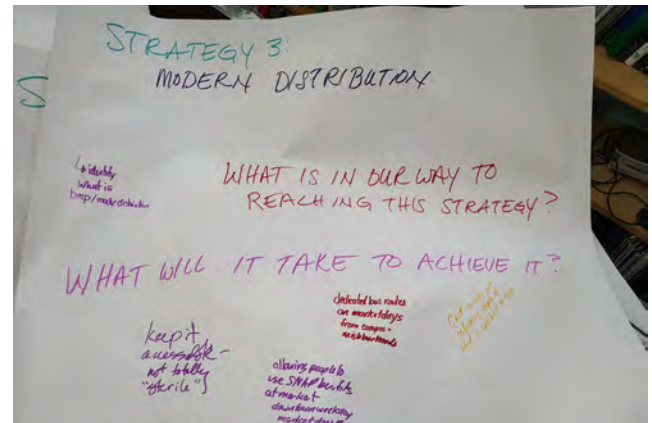 STRATEGY 3:
MODERN DISTRIBUTION
S
↳ identify
what is
bmp/
WHAT IS IN OUR WAY TO
REACHING THIS STRATEGY?
WHAT WILL IT TAKE TO ACHIEVE IT?
dedicated bus routes
on market days
from campus -
neighborhoods
keep it
accessible -
not totally
"sterile"
allowing people to
use SNAP benefits
at market
downtown weekday
market